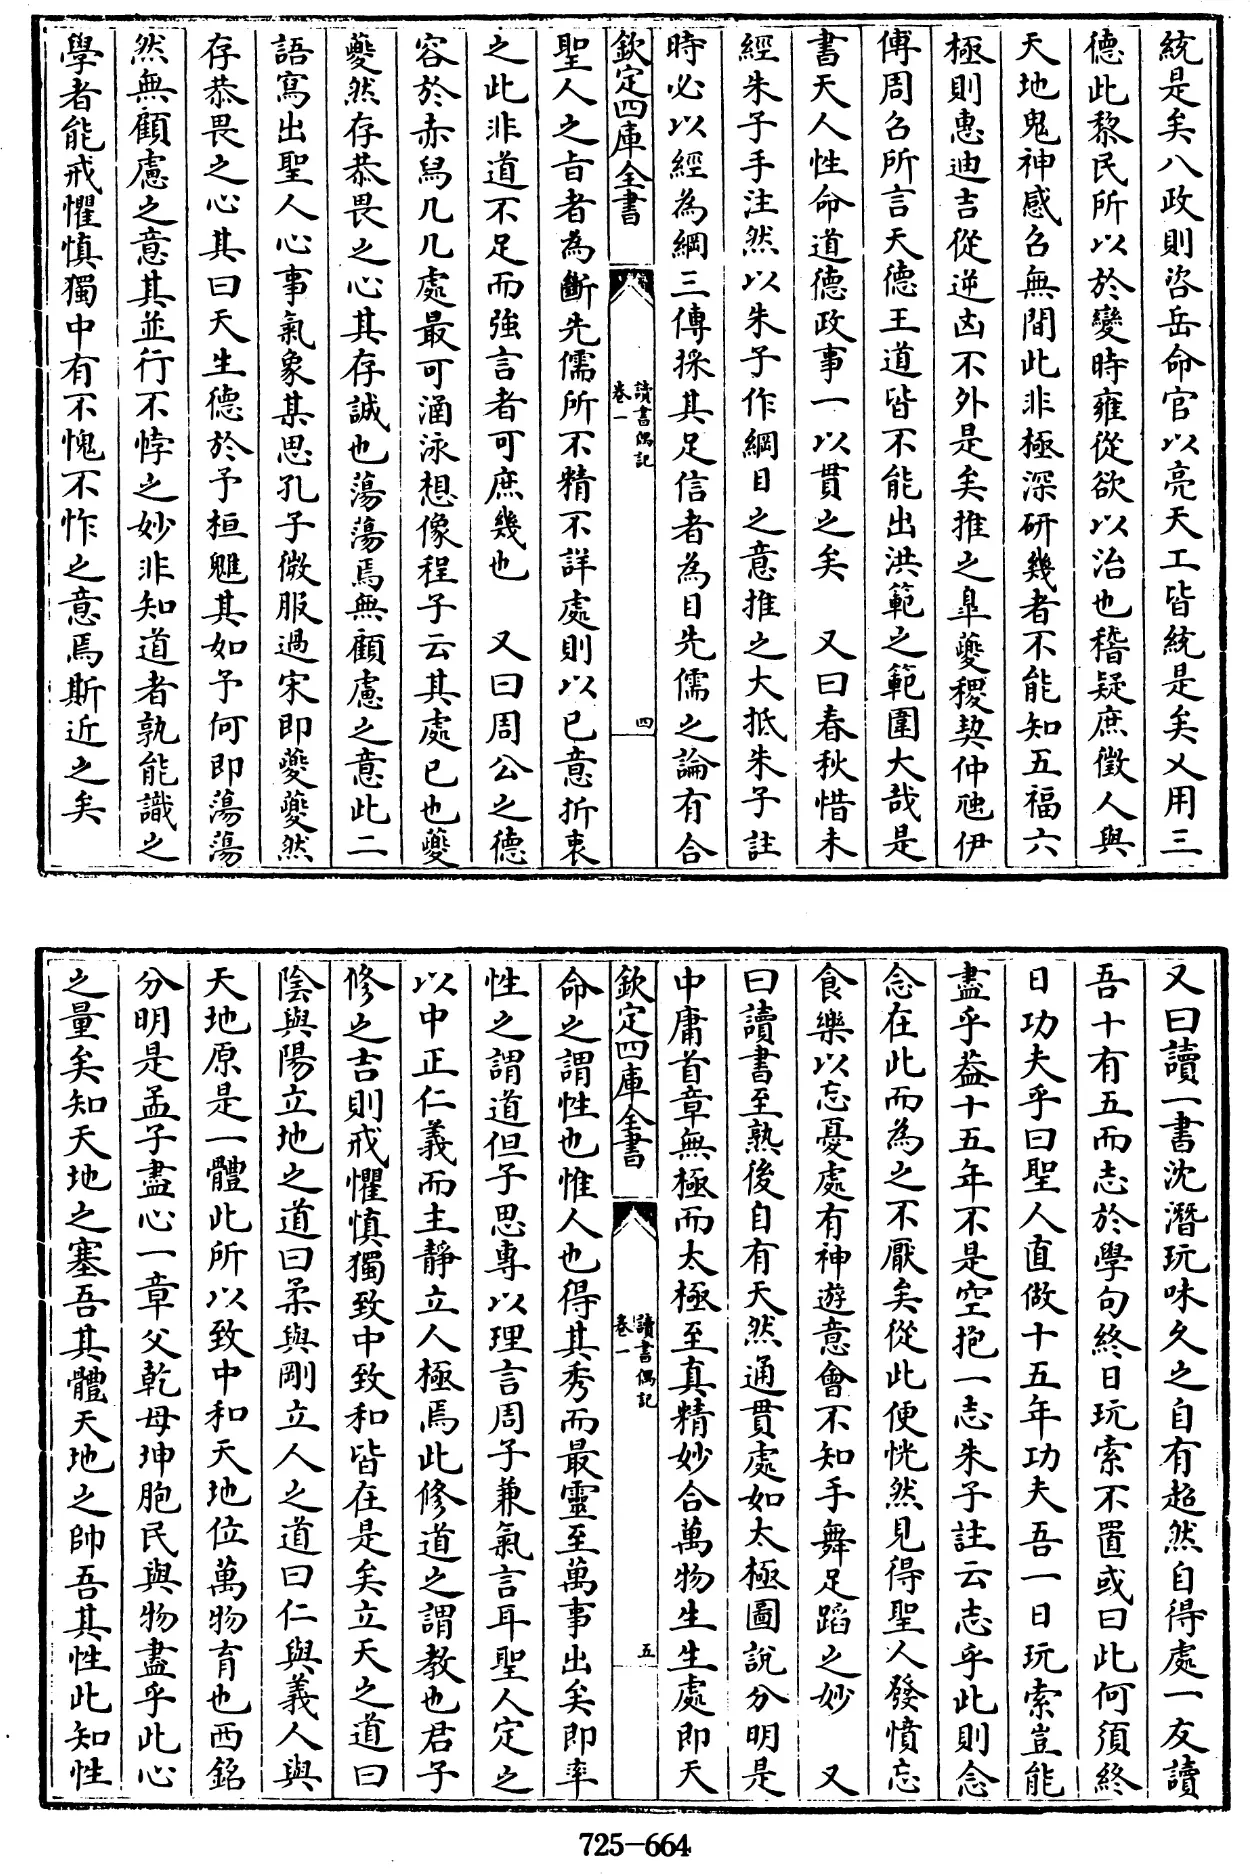 統是矣八政則咨岳命官以亮天工皆統是矣乂用三
德此黎民所以於變時雍從欲以治也稽疑庶徵人與
天地鬼神感召無間此非極深研幾者不能知五福六
極則惠迪吉從逆凶不外是矣推之臯夔稷契仲虺伊
傅周召所言天德王道皆不能出洪範之範圍大哉是
書天人性命道德政事一以貫之矣　又曰春秋惜未
經朱子手注然以朱子作綱目之意推之大抵朱子註
時必以經為綱三傳採其足信者為目先儒之論有合
欽定四庫全書
讀書偶記
卷一
四
聖人之旨者為斷先儒所不精不詳處則以已意折衷
之此非道不足而強言者可庶幾也　又曰周公之德
容於赤舄几几處最可涵泳想像程子云其處已也夔
夔然存恭畏之心其存誠也蕩蕩焉無顧慮之意此二
語寫出聖人心事氣象某思孔子微服過宋即夔夔然
存恭畏之心其曰天生德於予桓魋其如予何即蕩蕩
然無顧慮之意其並行不悖之妙非知道者孰能識之
學者能戒懼慎獨中有不愧不怍之意焉斯近之矣
又曰讀一書沈潛玩味久之自有超然自得處一友讀
吾十有五而志於學句終日玩索不置或曰此何須終
日功夫乎曰聖人直做十五年功夫吾一日玩索豈能
盡乎葢十五年不是空抱一志朱子註云志乎此則念
念在此而為之不厭矣從此便恍然見得聖人發憤忘
食樂以忘憂處有神遊意會不知手舞足蹈之妙　又
曰讀書至熟後自有天然通貫處如太極圖說分明是
中庸首章無極而太極至真精妙合萬物生生處即天
欽定四庫全書
讀書偶記
卷一
五
命之謂性也惟人也得其秀而最靈至萬事出矣即率
性之謂道但子思專以理言周子兼氣言耳聖人定之
以中正仁義而主靜立人極焉此修道之謂教也君子
修之吉則戒懼慎獨致中致和皆在是矣立天之道曰
陰與陽立地之道曰柔與剛立人之道曰仁與義人與
天地原是一體此所以致中和天地位萬物育也西銘
分明是孟子盡心一章父乾母坤胞民與物盡乎此心
之量矣知天地之塞吾其體天地之帥吾其性此知性
725-664